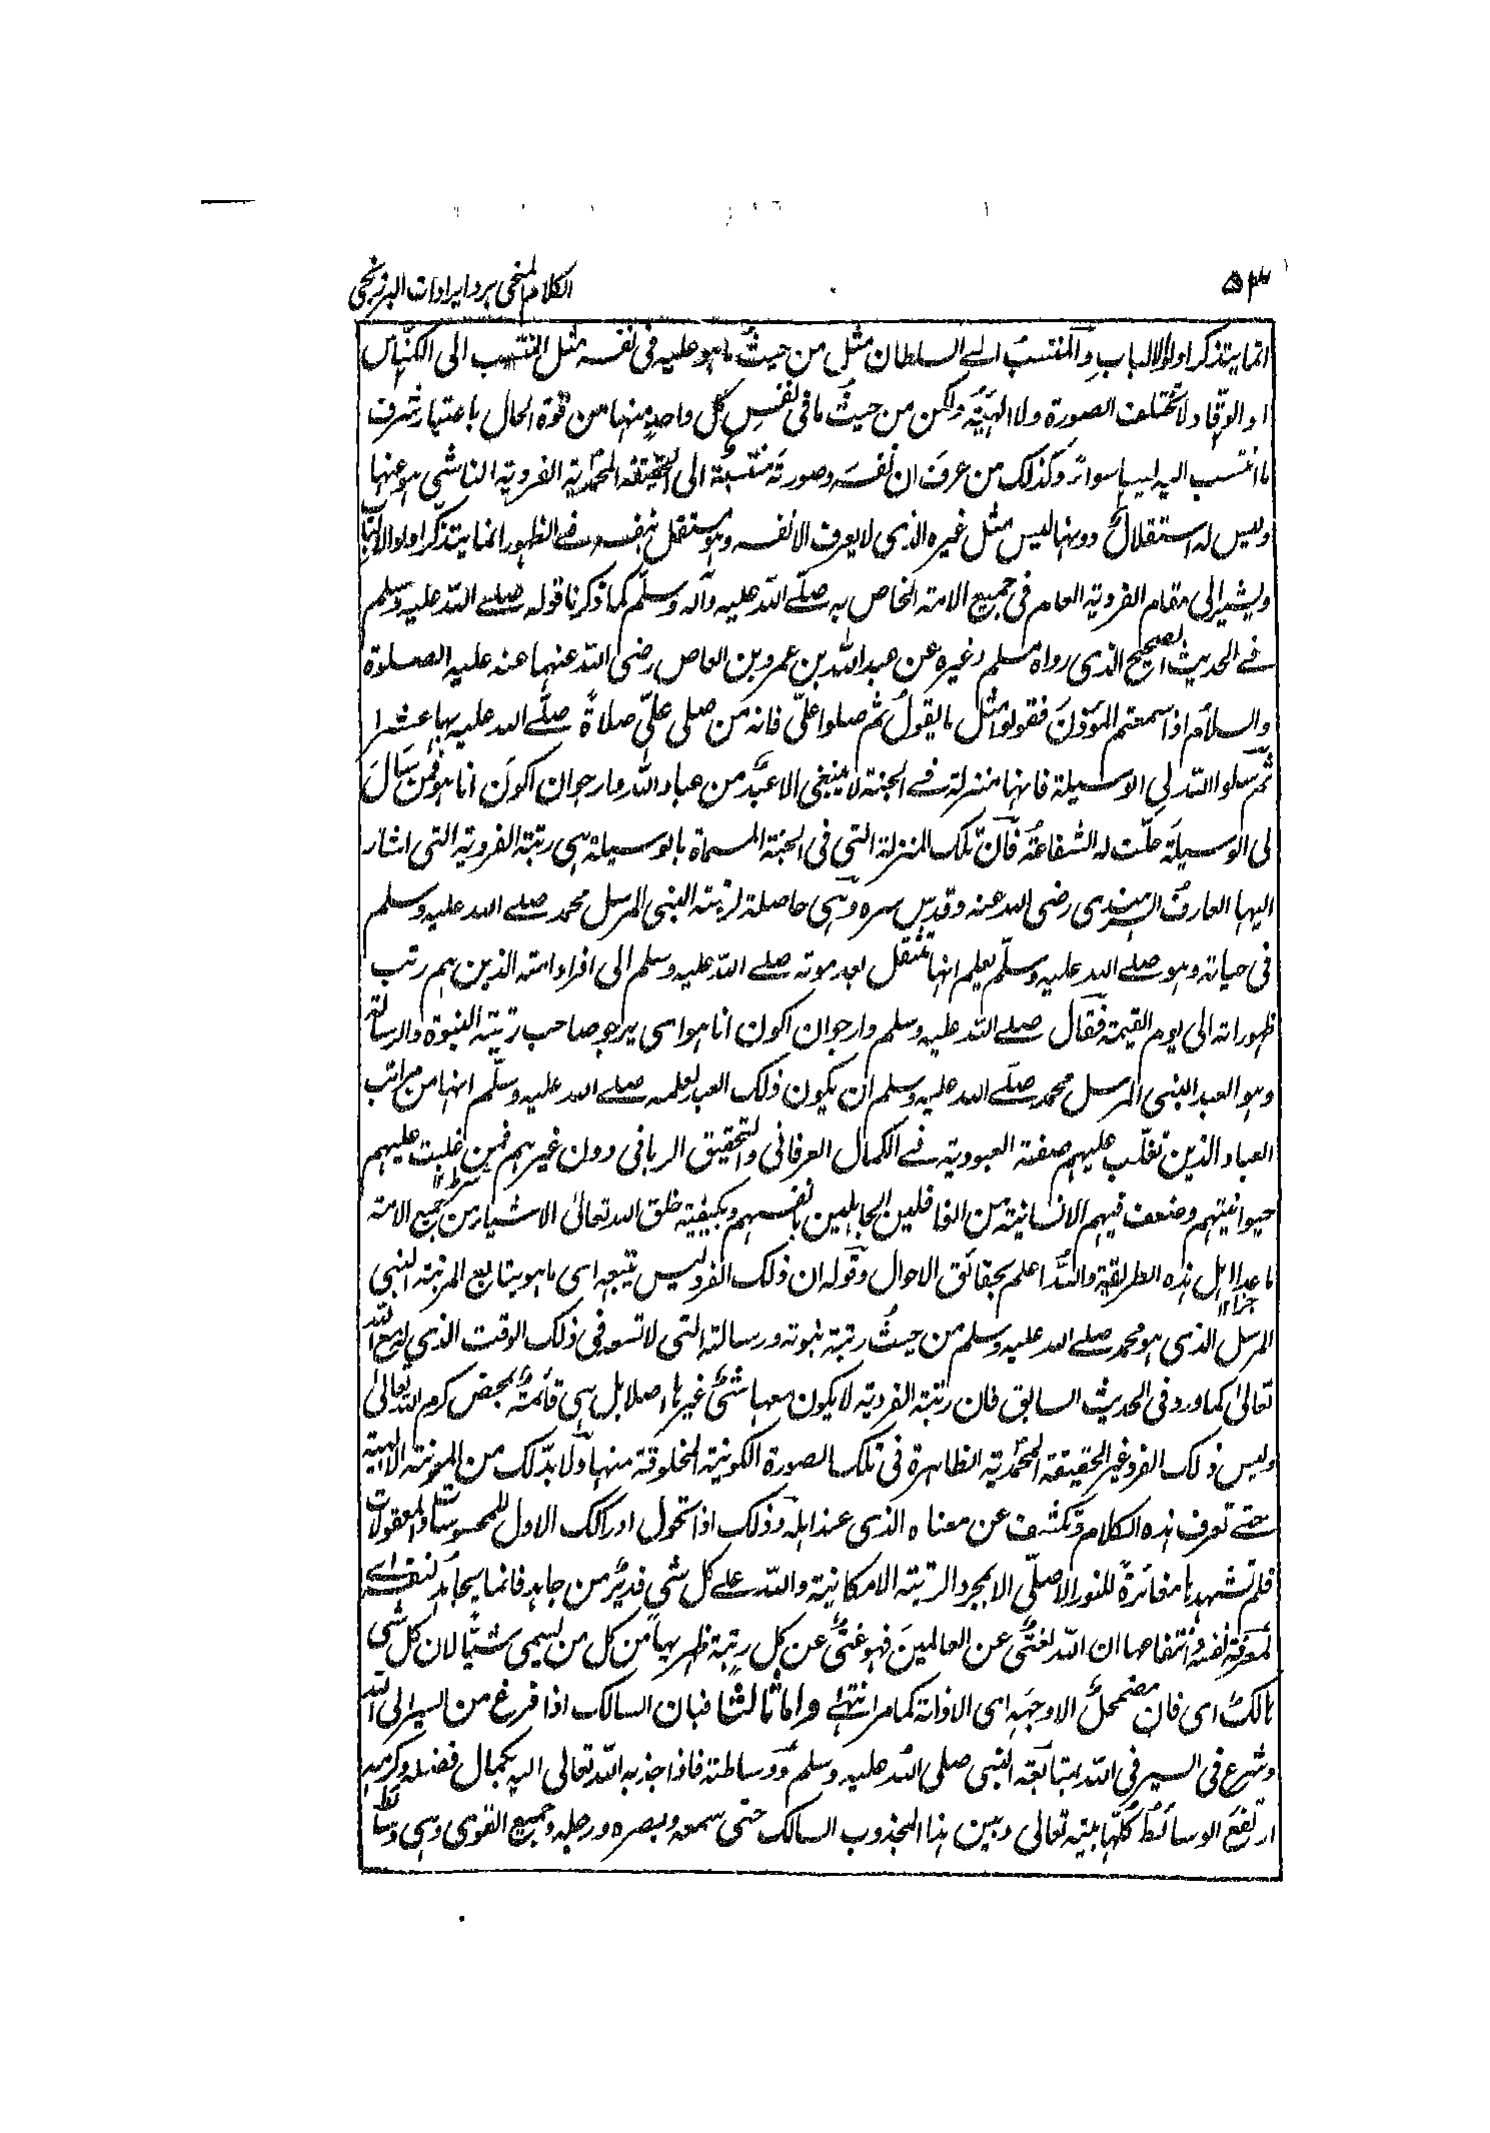 ٥٣
الكلام المنجی برد ایرادات البرزنجی
انما یتذکر اولوا الالباب والمنتسب الی السلطان مثل من حیث ما هو علیه فی نفسه مثل المنتسب الی الکناس
او الوقاد لا تختلف الصورة ولا الهیئة ولکن من حیث ما فی نفس کل واحد منهما من قوة الحال باعتبار شرف
ما انتسب الیه لیسا سواء وکذلک من عرف ان نفسه وصورته منتسبة الی الحقیقة المحمدیة الفردیة الناشی هو عنها
ولیس له استقلال دونها لیس مثل غیره الذی لا یعرف الا نفسه وهو مستقل بنفسه فی الظهور انما یتذکر اولوا الالباب
ویشیر الی مقام الفردیة العام فی جمیع الامة الخاص به صلے الله علیه وآله وسلم کما ذکرنا قوله صلے الله علیه وسلم
فی الحدیث الصحیح الذی رواه مسلم وغیره عن عبد الله بن عمرو بن العاص رضی الله عنهما عنه علیه الصلوة
والسلام اذا سمعتم المؤذن فقولوا مثل ما یقول ثم صلوا علیّ فانه من صلی علیّ صلاة صلے الله علیه بها عشرا
ثم سلوا الله لی الوسیلة فانها منزلة فی الجنة لا ینبغی الا عبد من عباد الله وارجو ان اکون انا هو فمن سأل
لی الوسیلة حلت له الشفاعة فان تلک المنزلة التی فی الجنة المسماة بالوسیلة هی رتبة الفردیة التی اشار
الیها العارف السرهندی رضی الله عنه وقدس سره وهی حاصلة لرتبة النبی المرسل محمد صلے الله علیه وسلم
فی حیاته وهو صلے الله علیه وسلم یعلم انها تنتقل بعد موته صلے الله علیه وسلم الی افراد امته الذین هم رتب
ظهوراته الی یوم القیمة فقال صلے الله علیه وسلم وارجو ان اکون انا هو ای یرجو صاحب رتبة النبوة والرسالة
وهو العبد النبی المرسل محمد صلے الله علیه وسلم ان یکون ذلک العبد لعلمه صلے الله علیه وسلم انها من مراتب
العباد الذین تغلب علیهم صفة العبودیة فی الکمال العرفانی والتحقیق الربانی دون غیرهم فمن غلبت علیهم
حیوانیتهم وضعف فیهم الانسانیة من الغافلین الجاهلین بانفسهم وبکیفیة خلق الله تعالیٰ الاشیاء من جمیع الامة
ما عدا اهل هذه الطریقة والله اعلم بحقائق الاحوال وقوله ان ذلک الفرد لیس یتبعه ای ما هو بتابع المرتبة النبی
المرسل الذی هو محمد صلے الله علیه وسلم من حیث رتبة نبوته ورسالته التی لا تسعه فی ذلک الوقت الذی له مع الله
تعالیٰ کما ورد فی الحدیث السابق فان رتبة الفردیة لا یکون معها شئ غیرها اصلا بل هی قائمة بمحض کرم الله تعالیٰ
ولیس ذلک الفرد غیر الحقیقة المحمدیة الظاهرة فی تلک الصورة الکونیة المخلوقة منها ولا بد لک من المؤنة الالهیة
حتے تعرف هذه الکلام وتکشف عن معناه الذی عند اهله وذلک اذا تحول ادراکک الاول للمحسوسات والمعقولات
فلم تشهدها مغائرة للنور الاصلی الا بمجرد الرتبة الامکانیة والله علے کل شئ قدیر من جاهد فانما یجاهد لنفسه ای
لمعرفة نفسه وانتفاعها ان الله لغنی عن العالمین فهو غنی عن کل رتبة ظهر بها من کل من یسمی شیئا لان کل شئ
هالک ای فان مضمحل الا وجهه ای الا ذاته کما مر انتهٰی واما ثالثا فبان السالک اذا فرغ من السیر الی الله
وشرع فی السیر فی الله بمتابعة النبی صلی الله علیه وسلم ووساطته فاذا جذبه الله تعالی الیه بکمال فضله وکرمه
ارتفع الوسائط کلها بینه تعالی وبین هذا المجذوب السالک حتی سمعه وبصره ورجله وجمیع القوی وهی وسائط